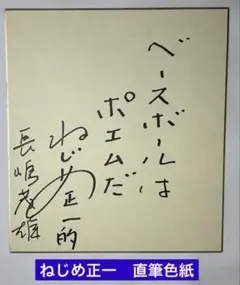 ベースボールは
ポエムだ
ねじめ正一的
長嶋茂雄
ねじめ正一　直筆色紙